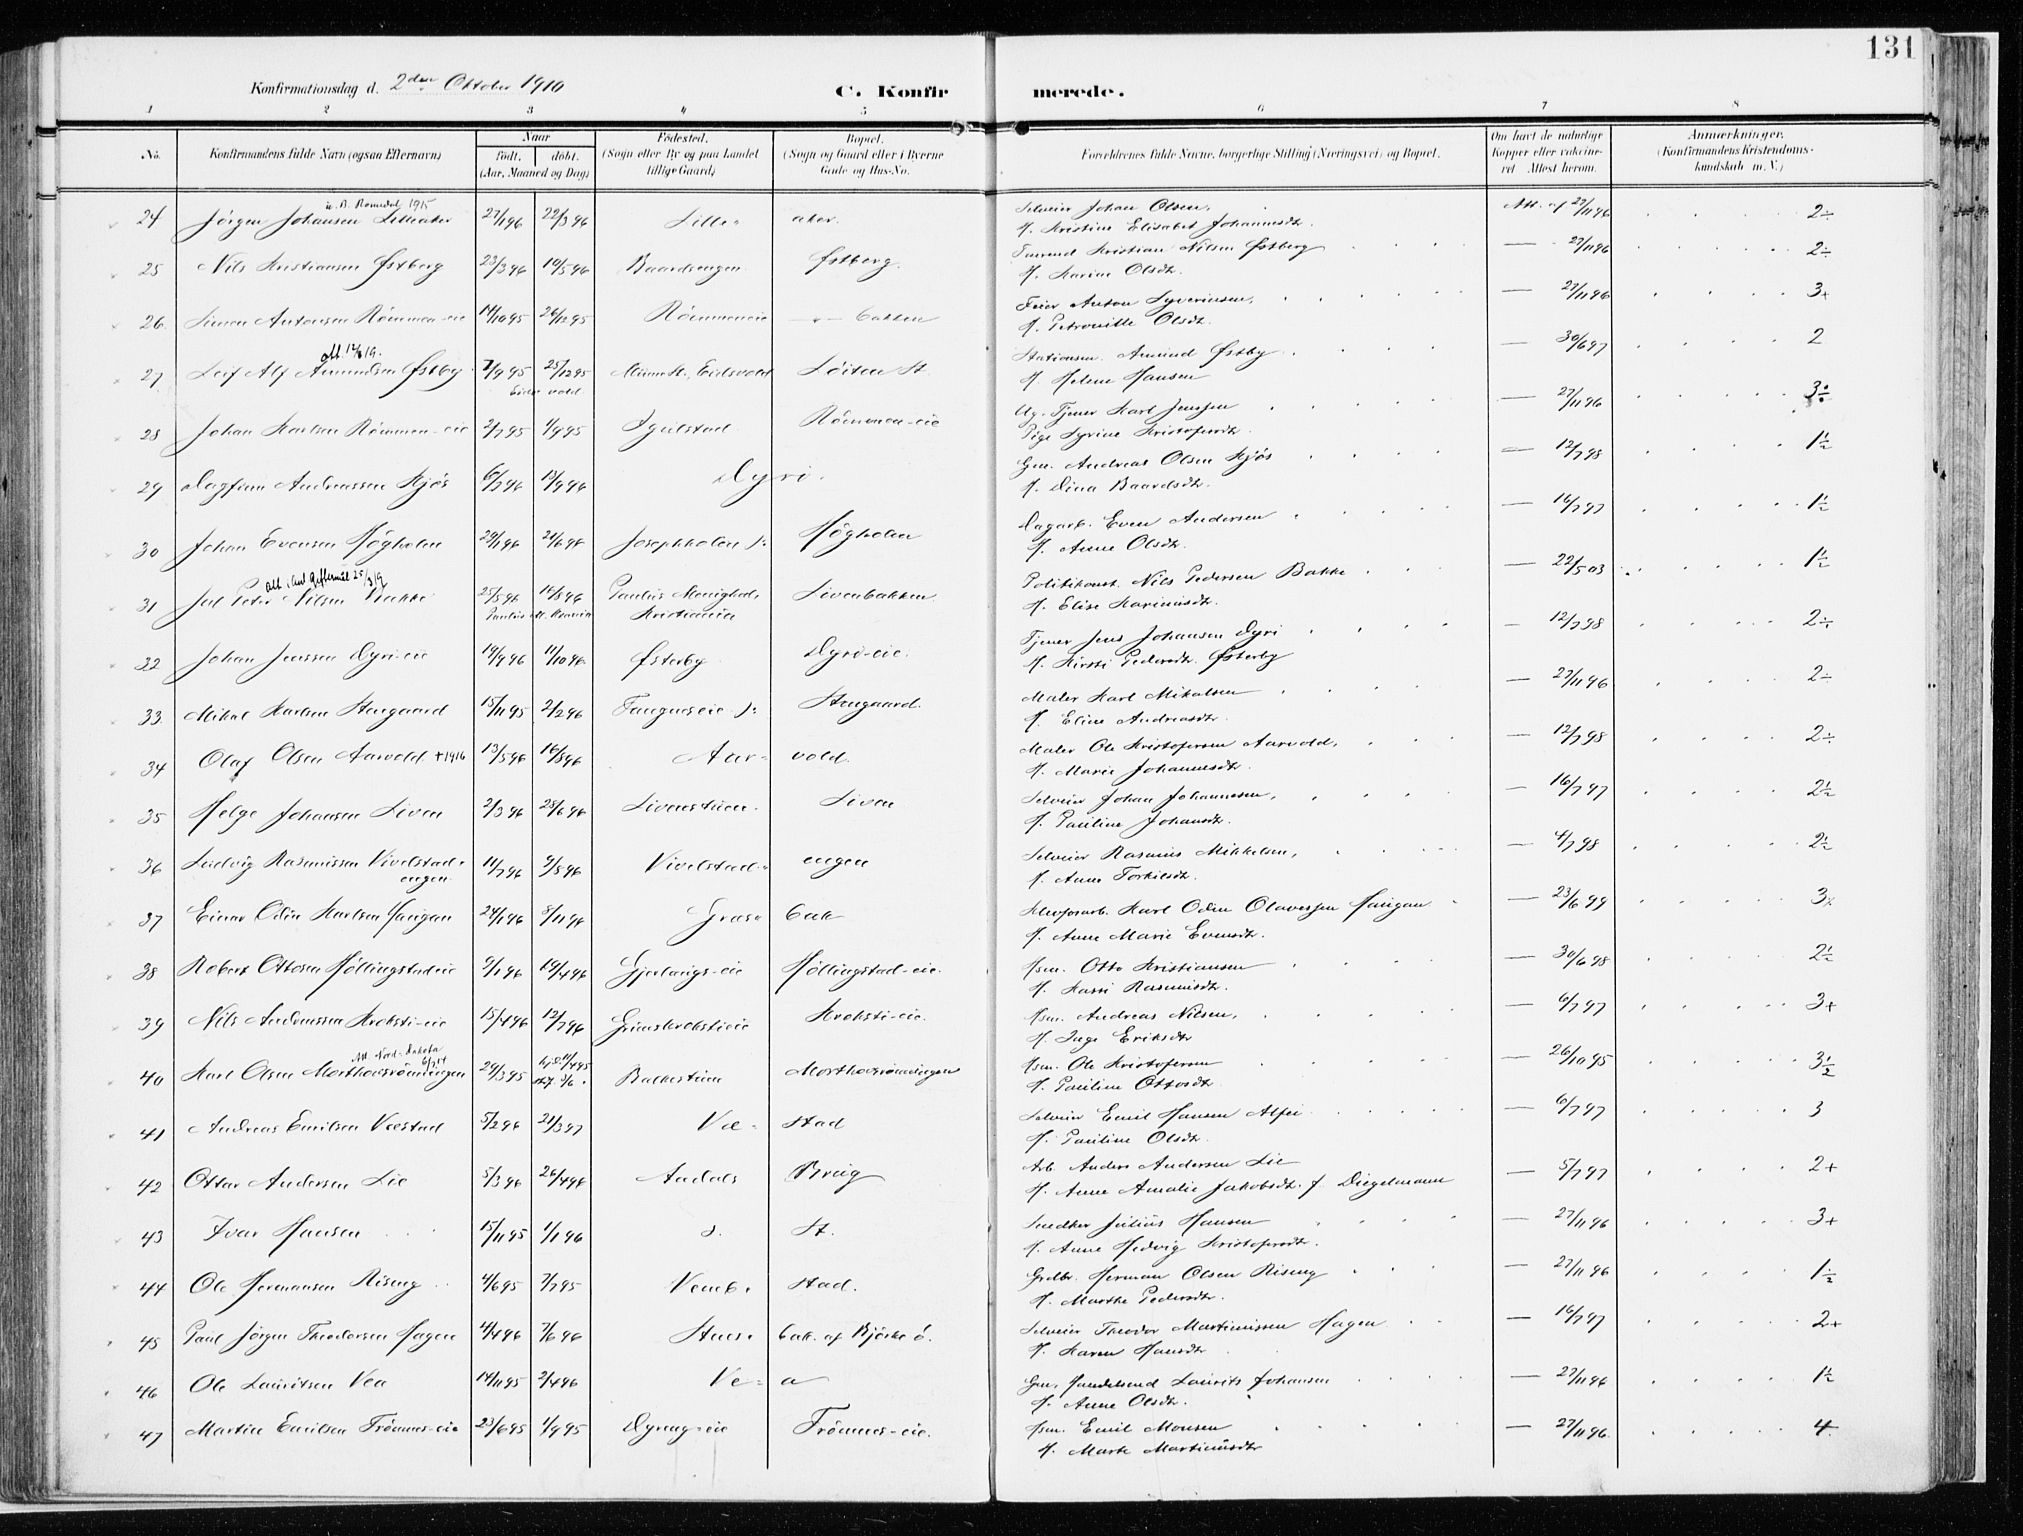 131
Konfirmationsdag d. 2den Oktober 1910
C. Konfirmerede.
1 2 3 4 5 6 7 8
No. Konfirmandens fulde Navn (ogsaa Efternavn)
Naar født, døbt. (Aar, Maaned og Dag)
Fødested. (Sogn eller By og paa Landet tillige Gaard)
Bopæl. (Sogn og Gaard eller i Byerne Gade og Hus-No.
Forældrenes fulde Navne, borgerlige Stilling (Næringsvei) og Bopæl.
Om havt de naturlige Kopper eller vaksineret Attest herom.
Anmærkninger. (Konfirmandens Kristendomskundskab m. V.)
24 Jørgen Johansen Lilleaker 27/1 96 22/3 96 Lille- aker. Selveier Johan Olsen, Att. af 27/11 96 2÷
H. Kristine Elisabet Johannesdtr.
25 Nils Kristiansen Østberg 23/3 96 10/5 96 Baardsengen Østberg. Kristian Nilsen Østberg — 27/11 96 2÷
H. Karine Olsdtr.
26. Simen Antonsen Rømmen-eie 14/10 95 26/12 95 Rømmeneie —"— bakken Feier Anton Syverinsen, — 27/11 96 3+
H. Petronille Olsdtr.
att. 12/6 19.
27 Leif Alf Amundsen Østby 7/9 95 25/12 95 Minne St., Eidsvold Løiten St. Stationsm. Amund Østby — 30/6 97 2
Eidsvold H. Helene Hansen
28 Johan Karlsen Rømmen-eie 2/7 95 1/9 95 Igulstad Rømmen-eie Ug. Tjener Karl Jenssen — 27/11 96 3÷
Pige Syrine Kristofersdtr.
29 Dagfinn Andreassen Kjøs 6/7 96 13/9 96 Dyri. Gm. Andreas Olsen Kjøs — 12/7 98 1½
H. Dina Baardsdtr.
30 Johan Evensen Høgholen 29/1 96 21/6 96 Josephholen Høgholen Dagarb. Even Andersen — 16/7 97 1½
H. Anne Olsdtr.
31 Jul Peter Nilsen Bakke 25/5 96 16/8 96 Paulus Menighed, Kristiania Livenbakken Politikonst. Nils Pedersen Bakke — 22/5 03 1½
H. Elise Karinusdtr.
32 Johan Jenssen Dyri-eie 19/9 96 11/10 96 Østerby Dyri-eie. Tjener Jens Johansen Dyri — 12/7 98 2÷
H. Kirsti Pedersdtr. Østerby
33 Mikal Karlsen Stengaard 15/11 95 2/2 96 Stengaard. Maler Karl Mikalsen — 27/11 96 2÷
H. Eline Andreasdtr.
34 Olaf Olsen Aarvold +1916 13/5 96 16/8 96 Aar- vold. Maler Ole Kristofersen Aarvold, — 12/7 98 2÷
H. Marie Johannesdtr.
35 Helge Johansen Liven 2/3 96 28/6 96 Livenstuen Liven Selveier Johan Johannesen, — 16/7 97 2½
H. Pauline Johansdtr.
36 Ludvig Rasmussen Vivelstad-engen 11/7 96 9/8 96 Vivelstad- engen Selveier Rasmus Mikkelsen, — 4/7 98 2½
H. Anne Torkilsdtr.
37 Einar Odin Karlsen Haugan 24/1 96 8/11 96 Græs- bak Karl Odin Olavessen Haugan — 23/6 99 3
H. Anne Marie Evensdtr.
38 Robert Ottosen Høllingstadeie 9/1 96 19/4 96 Gjerlangs-eie Høllingstad-eie. Hsm. Otto Kristiansen — 30/6 98 2½
H. Kari Rasmusdtr.
39 Nils Andreassen Kroksti-eie 15/4 96 12/7 96 Grinskrokstieie Kroksti-eie. Hsm. Andreas Nilsen, — 6/7 97 3+
H. Inge Eriksdtr.
Att. Nord-Dakota 6/7 14
40 Karl Olsen Morthovsrønningen 29/3 95 Balkestuen Morthovsrønningen Hsm. Ole Kristofersen — 26/10 95 3½
H. Pauline Ottosdtr.
41 Andreas Emilsen Vestad 5/2 96 21/3 97 Ve- stad Selveier Emil Hansen Alfei — 6/7 97 3
H. Pauline Olsdtr.
42 Ottar Andersen Lie 5/3 96 26/4 96 Aadals Brug Arb. Anders Andersen Lie — 5/7 97 2+
H. Anne Amalie Jakobsdtr. f. Diegelmann
43 Ivar Hansen 15/11 95 1/1 96 St. Snedker Julius Hansen — 27/11 96 3+
H. Anne Hedvig Kristofersdtr.
44 Ole Hermansen Rising 4/6 95 7/7 95 Vemb- stad. Grdbr. Herman Olsen Rising — 27/11 96 1½
H. Marthe Pedersdtr.
45 Paul Jørgen Theodorsen Hagen 4/4 96 7/6 96 Stues- bak. af Bjørke ø. Selveier Theodor Martinussen Hagen — 16/7 97 2+
H. Karen Hansdtr.
46 Ole Lauritsen Vea 14/11 95 2/4 96 Ve- a Gm. Laurits Johansen — 27/11 96 1½
H. Anne Olsdtr.
47 Martin Emilsen Frønnes-eie 23/6 95 1/9 95 Dyreng-eie Frønnes-eie. Hsm. Emil Monsen — 27/11 96 4
H. Marte Martinusdtr